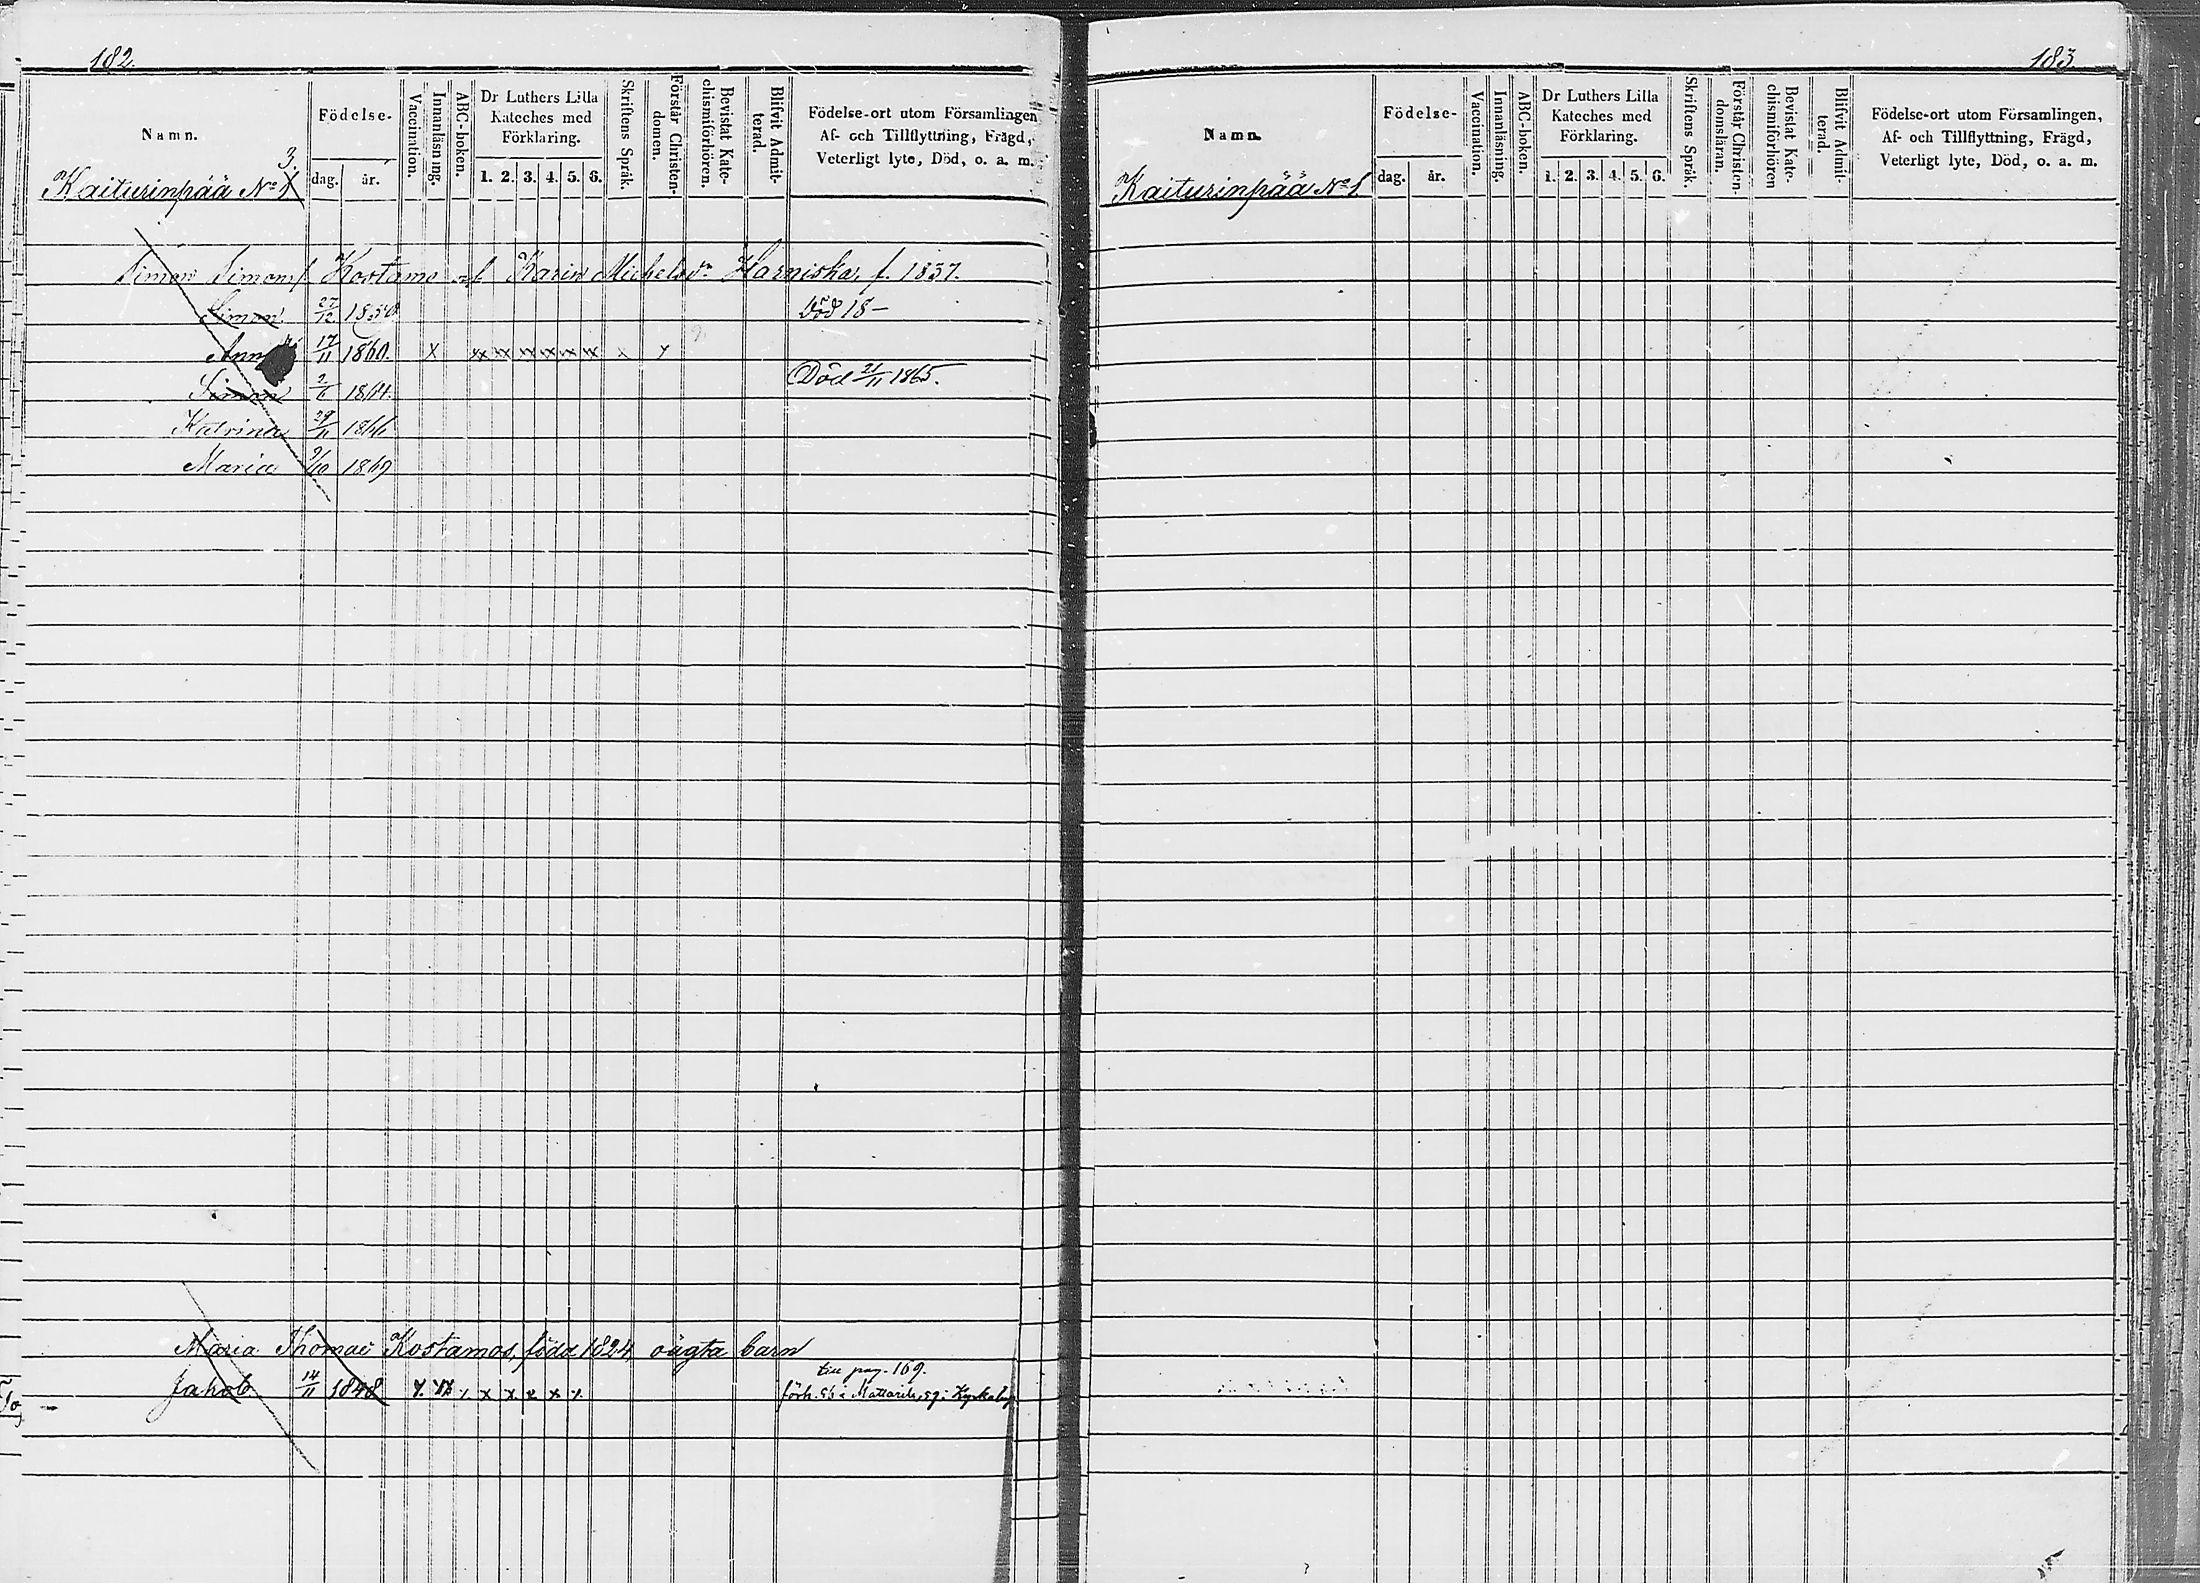 182.
Namn.
Födelse-
dag.
år.
Vaccination.
Innanläsning.
ABC-boken.
Dr Luthers Lilla
Kateches med
Förklaring.
1. 2. 3. 4. 5. 6.
Skriftens Språk.
Förstår Christen-
domen.
Bevistat Kate-
chismiförhören.
Blifvit Admit-
terad.
Födelse-ort utom Församlingen
Af- och Tillflyttning, Frägd,
Veterligt lyte, Död, o. a. m.
3.
Kaiturinpää No 1
Simon Simons. Kostamo och Karin Michelsdr Harniska, f. 1837.
Simon 27/12 1858 Död 18-
Anna 17/11 1860. x xx xx xx xx xx xx x x
Simon 2/6 1864. Död 21/11 1865.
Katrina 29/11 1866
Maria 9/10 1869
Maria Thomae Kostamos, född 1824, oägta barn
till pag. 169.
Jakob 14/11 1848 förh. 56 i Mattarila, 59 i Kyrkoby
183
Namn.
Födelse-
dag.
år.
Vaccination.
Innanläsning.
ABC-boken.
Dr Luthers Lilla
Kateches med
Förklaring.
1. 2. 3. 4. 5. 6.
Skriftens Språk.
Förstår Christen-
domsläran.
Bevistat Kate-
chismiförhören
Blifvit Admit-
terad.
Födelse-ort utom Församlingen,
Af- och Tillflyttning, Frägd,
Veterligt lyte, Död, o. a. m.
Kaiturinpää No 1.